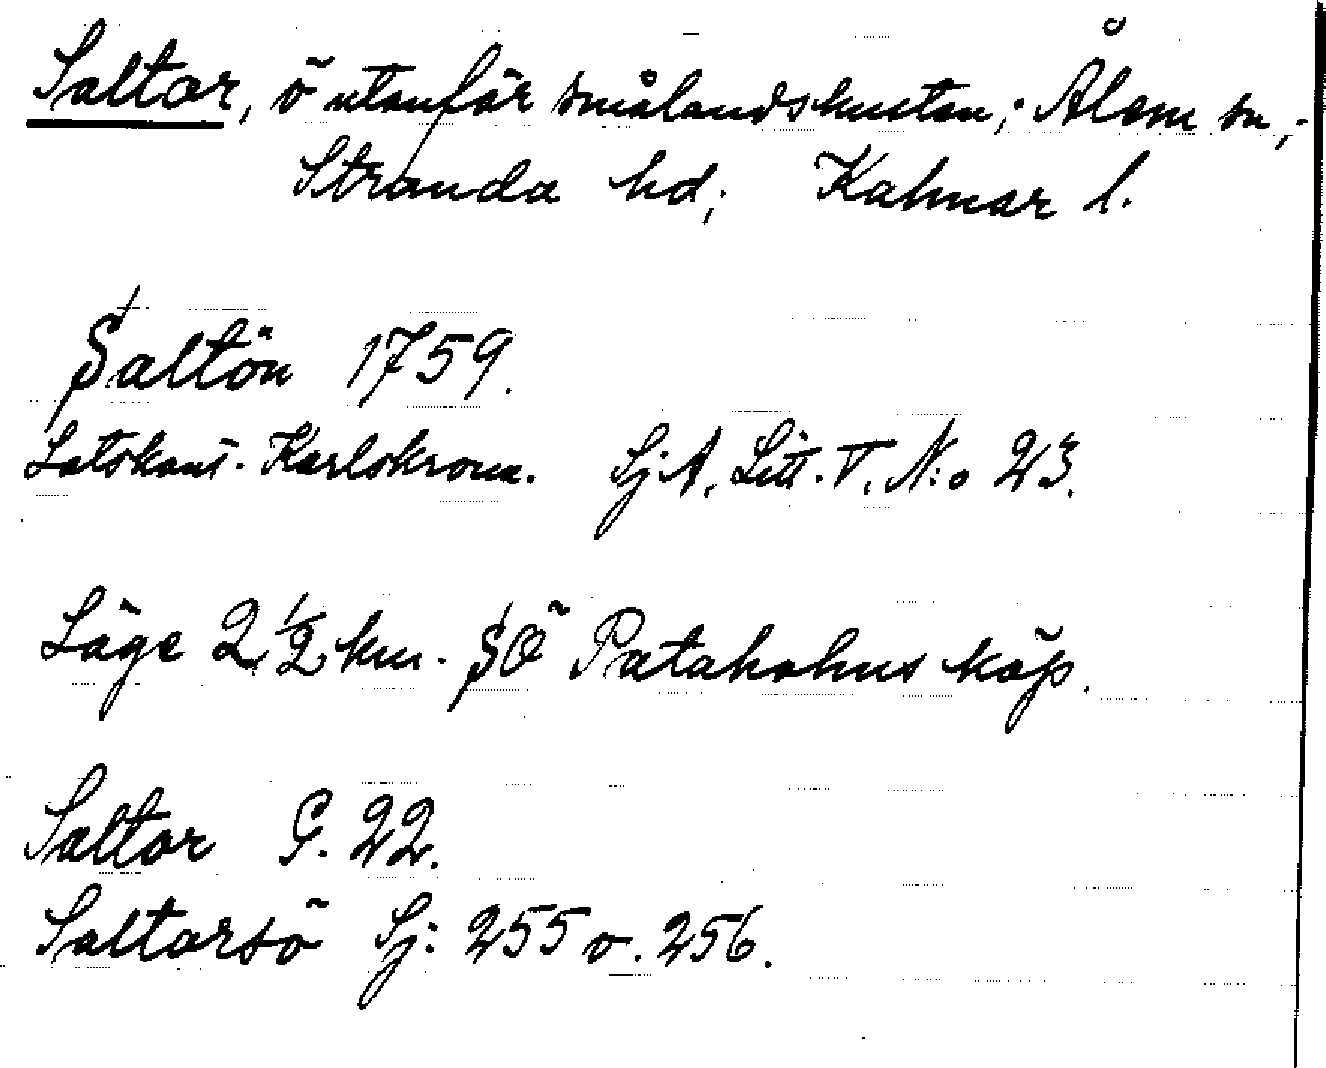 Å
Saltor, ö utanför smålandskusten; Ålem sn,
Stranda hd; Kalmar l.
Saltön 1759.
Lotskont. Karlskrona. Sj.A. Litt. T. N:o 23.
Läge 2 1/2 km. SÖ Pataholms köp.
Saltor G. 22.
Saltorsö Sj: 255 o. 256.